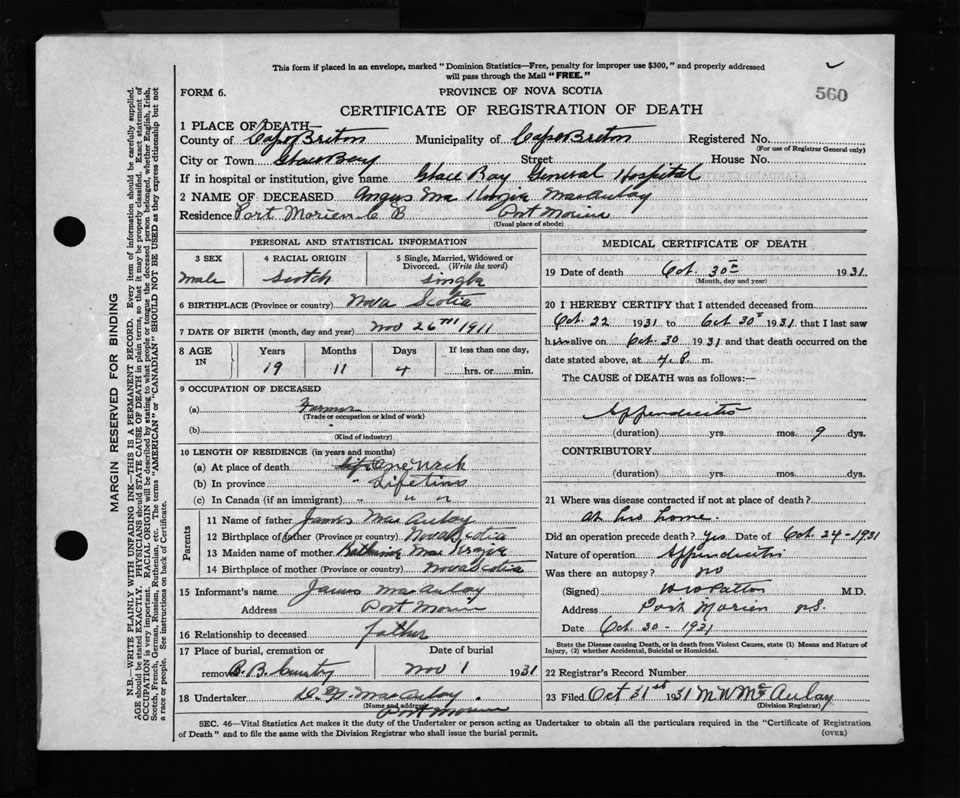 This form if placed in an envelope, marked "Dominion Statistics—Free, penalty for improper use $300," and properly addressed
will pass through the Mail "FREE."
560
FORM 6.
PROVINCE OF NOVA SCOTIA
CERTIFICATE OF REGISTRATION OF DEATH
1 PLACE OF DEATH—
County of Cape Breton Municipality of Cape Breton Registered No.
(For use of Registrar General only)
City or Town Glace Bay Street House No.
If in hospital or institution, give name Glace Bay General Hospital
2 NAME OF DECEASED Angus MacAulay
Residence Port Morien C B Port Morien
(Usual place of abode)
PERSONAL AND STATISTICAL INFORMATION
3 SEX 4 RACIAL ORIGIN 5 Single, Married, Widowed or Divorced. (Write the word)
male Scotch Single
6 BIRTHPLACE (Province or country) Nova Scotia
7 DATE OF BIRTH (month, day and year) Nov 26TH 1911
8 AGE IN Years Months Days If less than one day,
19 11 4 hrs. or min.
9 OCCUPATION OF DECEASED
(a) Farmer
(Trade or occupation or kind of work)
(b)
(Kind of industry)
10 LENGTH OF RESIDENCE (in years and months)
(a) At place of death One Week
(b) In province " Lifetime
(c) In Canada (if an immigrant) " " "
Parents
11 Name of father James MacAulay
12 Birthplace of father (Province or country) Nova Scotia
13 Maiden name of mother Katherine Mac
14 Birthplace of mother (Province or country) Nova Scotia
15 Informant's name James MacAulay
Address Port Morien
16 Relationship to deceased father
17 Place of burial, cremation or removal Date of burial
B.B. Cemetry Nov 1 1931
18 Undertaker MacAulay
(Name and address)
Port Morien
MEDICAL CERTIFICATE OF DEATH
19 Date of death Oct. 30th 1931.
(Month, day and year)
20 I HEREBY CERTIFY that I attended deceased from
Oct. 22 1931 to Oct 30th 1931 that I last saw
him alive on Oct. 30 1931 and that death occurred on the
date stated above, at 7. P. m.
The CAUSE OF DEATH was as follows:—
Appendicitis
(duration) yrs. mos. 9 dys.
CONTRIBUTORY
(duration) yrs. mos. dys.
21 Where was disease contracted if not at place of death?
At his home.
Did an operation precede death? Yes Date of Oct. 24-1931
Nature of operation Appendicitis
Was there an autopsy? no
(Signed) Patton M.D.
Address Port Morien N.S.
Date Oct. 30 - 1931
State the Disease causing Death, or in death from Violent Causes, state (1) Means and Nature of Injury, (2) whether Accidental, Suicidal or Homicidal.
22 Registrar's Record Number
23 Filed Oct 31st 1931 M W McAulay
(Division Registrar)
SEC. 46—Vital Statistics Act makes it the duty of the Undertaker or person acting as Undertaker to obtain all the particulars required in the "Certificate of Registration
of Death" and to file the same with the Division Registrar who shall issue the burial permit.
(OVER)
MARGIN RESERVED FOR BINDING
N.B.—WRITE PLAINLY WITH UNFADING INK—THIS IS A PERMANENT RECORD. Every item of information should be carefully supplied.
AGE should be stated EXACTLY. PHYSICIANS should STATE CAUSE OF DEATH in plain terms, so that it may be properly classified. Exact statement of
OCCUPATION is very important. RACIAL ORIGIN will be described by stating to what people or tongue the deceased person belonged, whether English, Irish,
Scotch, French, German, Russian, Ruthenian, etc. The terms "AMERICAN" or "CANADIAN" SHOULD NOT BE USED as they express citizenship but not
a race or people. See instructions on back of Certificate.